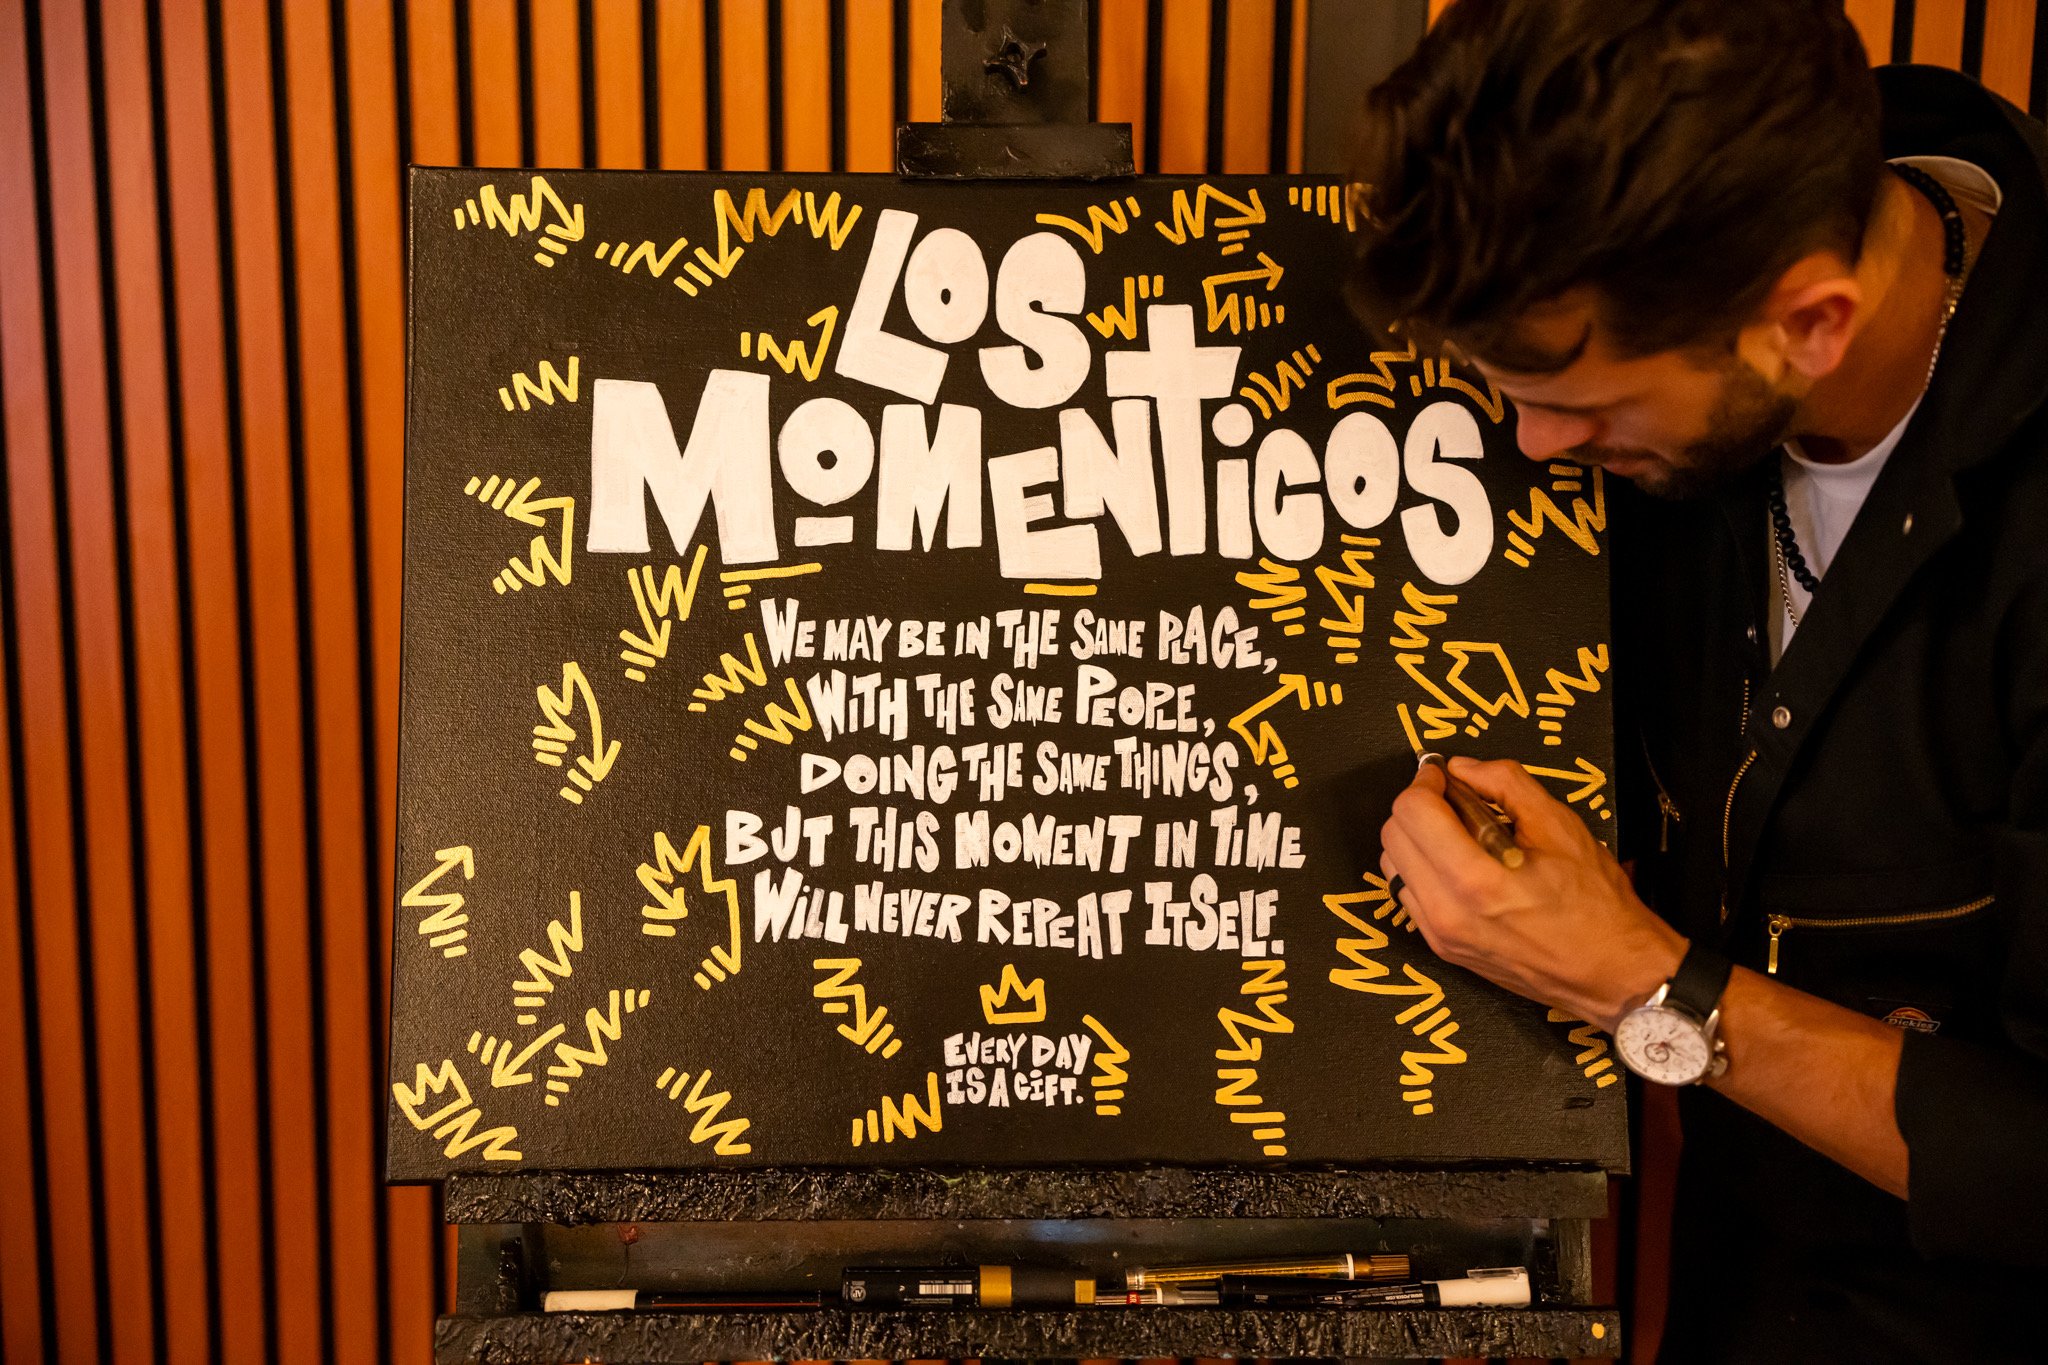 LOS
MOMENTICOS
WE MAY BE IN THE SAME PLACE,
WITH THE SAME PEOPLE,
DOING THE SAME THINGS,
BUT THIS MOMENT IN TIME
WILL NEVER REPEAT ITSELF.
EVERY DAY
IS A GIFT.
Dickies